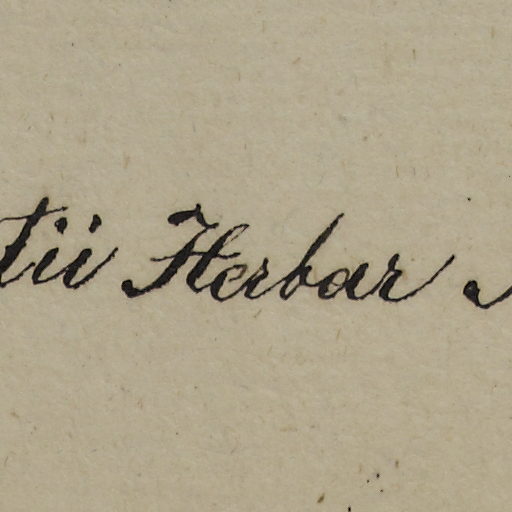 tii Herbar